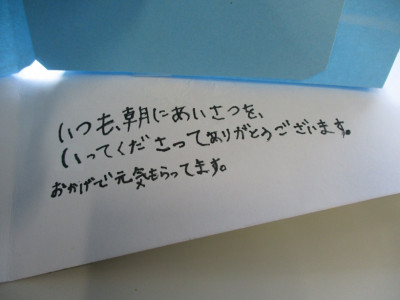 いつも、朝にあいさつを、
いってくださってありがとうございます。
おかげで元気もらってます。